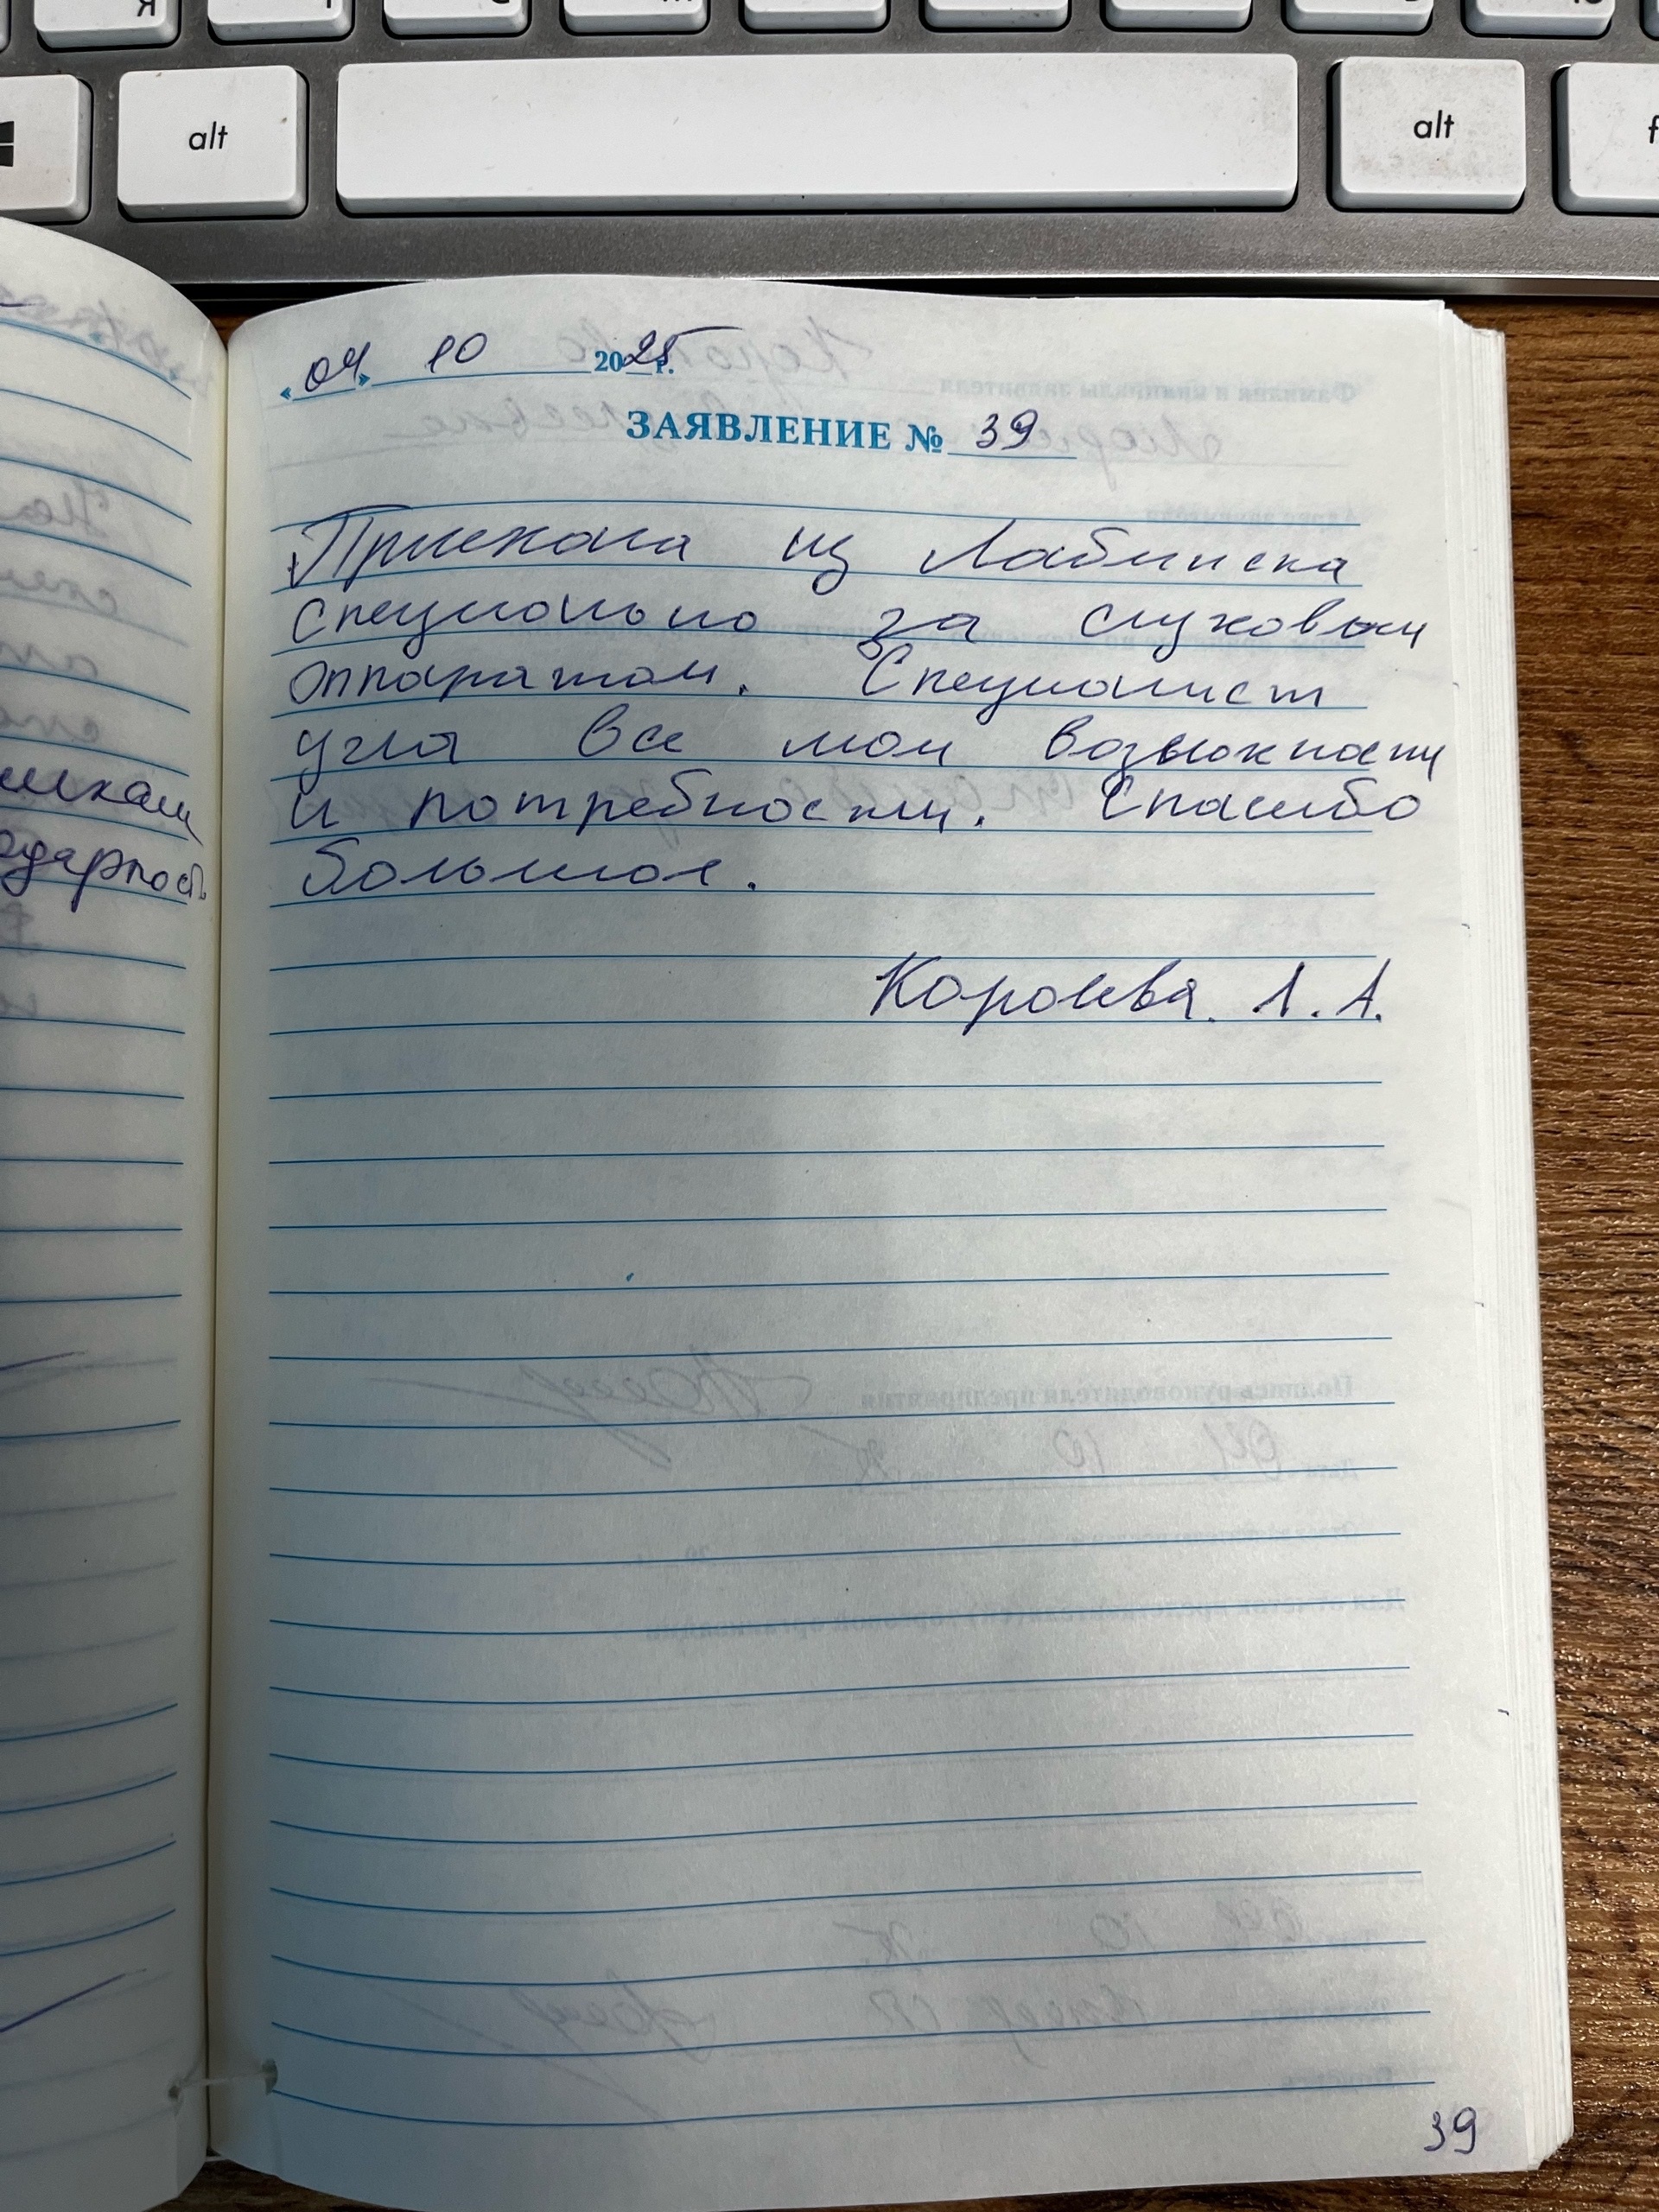 alt
alt
«04» 10 2025г.
ЗАЯВЛЕНИЕ № 39
Приехала из Лабинска
специально за слуховым
аппаратом. Специалист
учла все мои возможности
и потребности. Спасибо
большое.
Королева. Л. А.
39